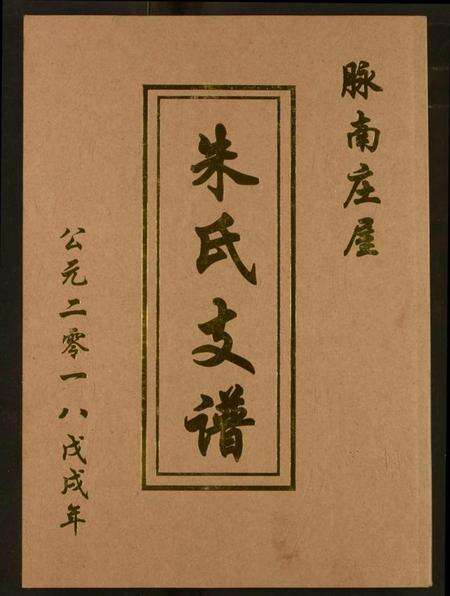 脉南庄屋
朱氏支谱
公元二零一八戊戌年